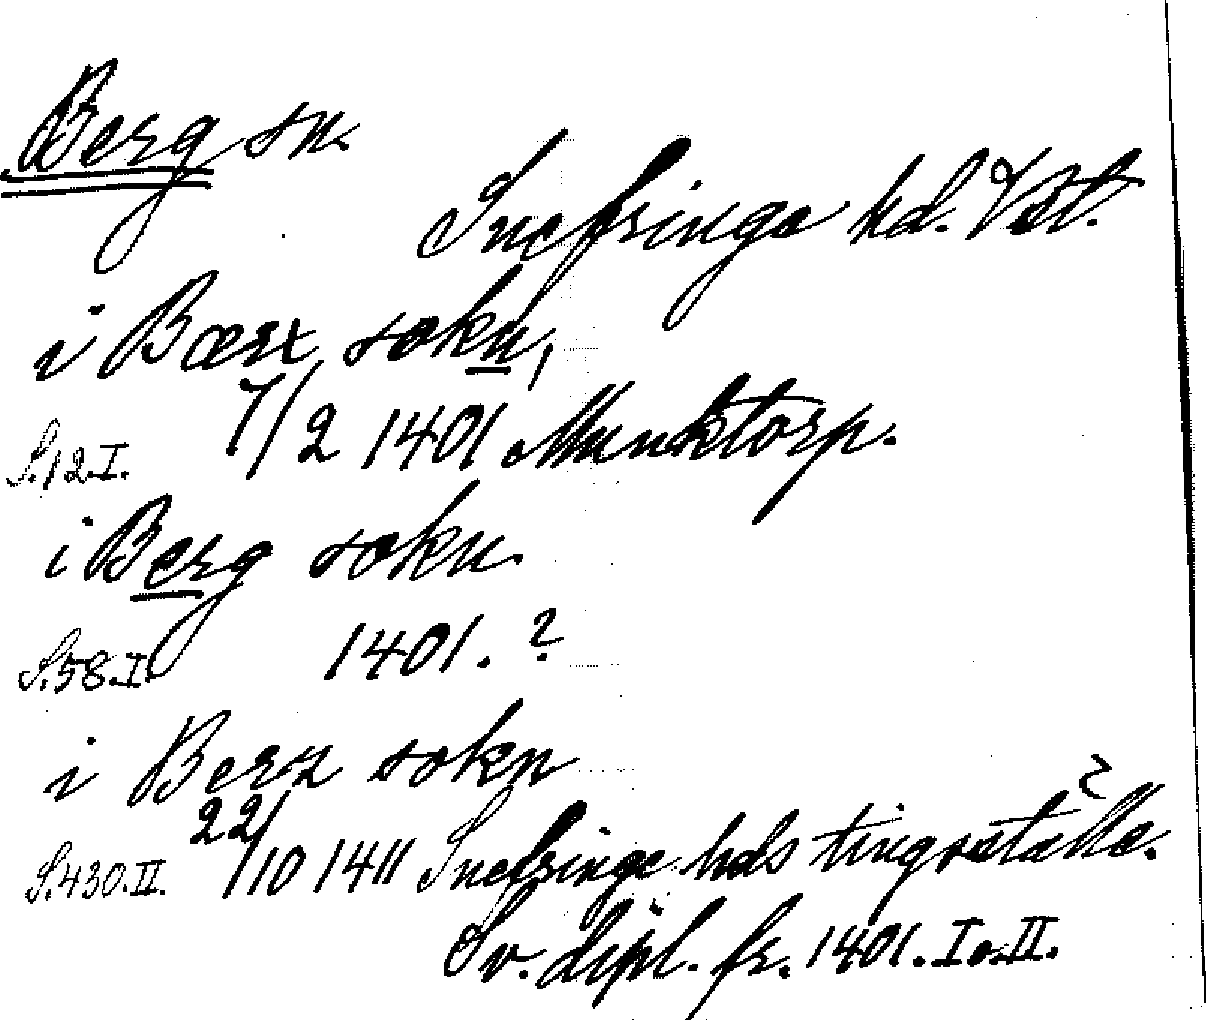 Berg sn.
Snefringe hd. Vstm.
i Bærx sokn,
7/2 1401 Munktorp.
S.12.I.
i Berg sokn
S.58.I. 1401. ?
i Berx sokn
S.430.II. 22/10 1411 Snefringe hds tingsställe. ?
Sv. dipl. fr. 1401. I o. II.